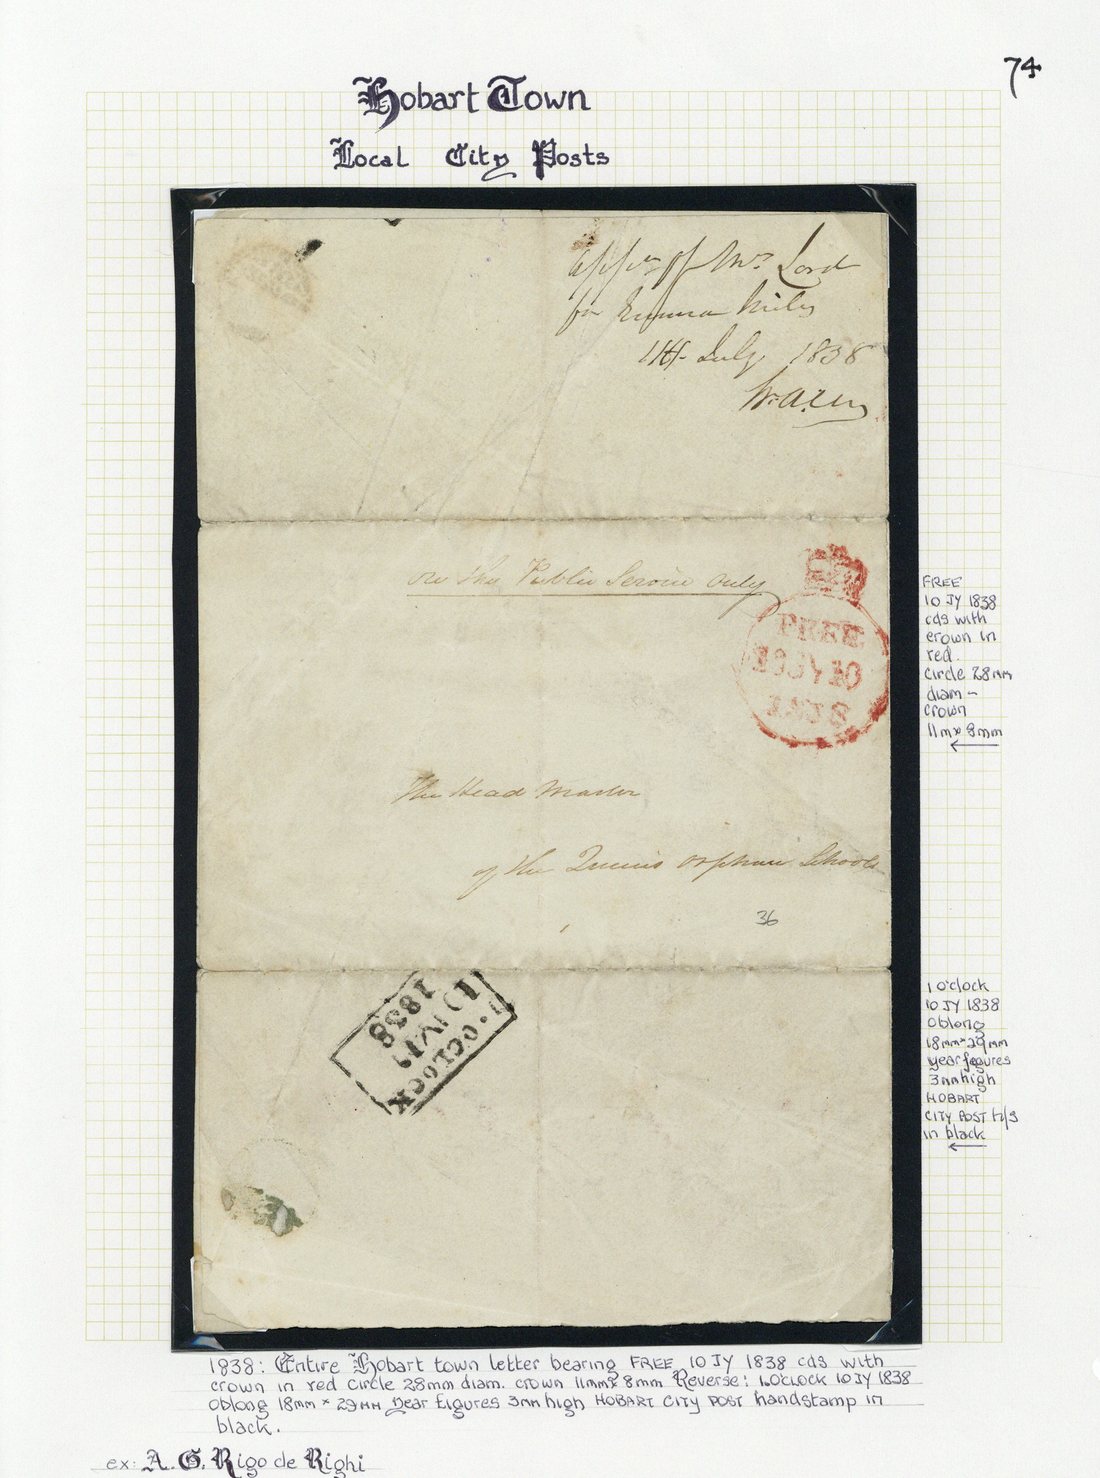 74
Hobart Town
Local City Posts
of Mrs Lord
for Emma
11th July 1838
on the Public Service only
FREE
10 JY 10
1838
The Head Master
of the Queens Orphan Schools
36
1 O'CLOCK
10 JY
1838
FREE
10 JY 1838
cds with
crown in
red.
circle 28mm
diam -
crown
11mm x 8mm
1 o'clock
10 JY 1838
oblong
18mm x 29mm
year figures
3mm high
HOBART
CITY POST H/S
in black
1838: Entire Hobart town letter bearing FREE 10 JY 1838 cds with
crown in red circle 28mm diam. crown 11mm x 8mm Reverse: 1.O'CLOCK 10 JY 1838
oblong 18mm x 29mm year figures 3mm high HOBART CITY POST handstamp in
black.
ex: A. G. Rigo de Righi